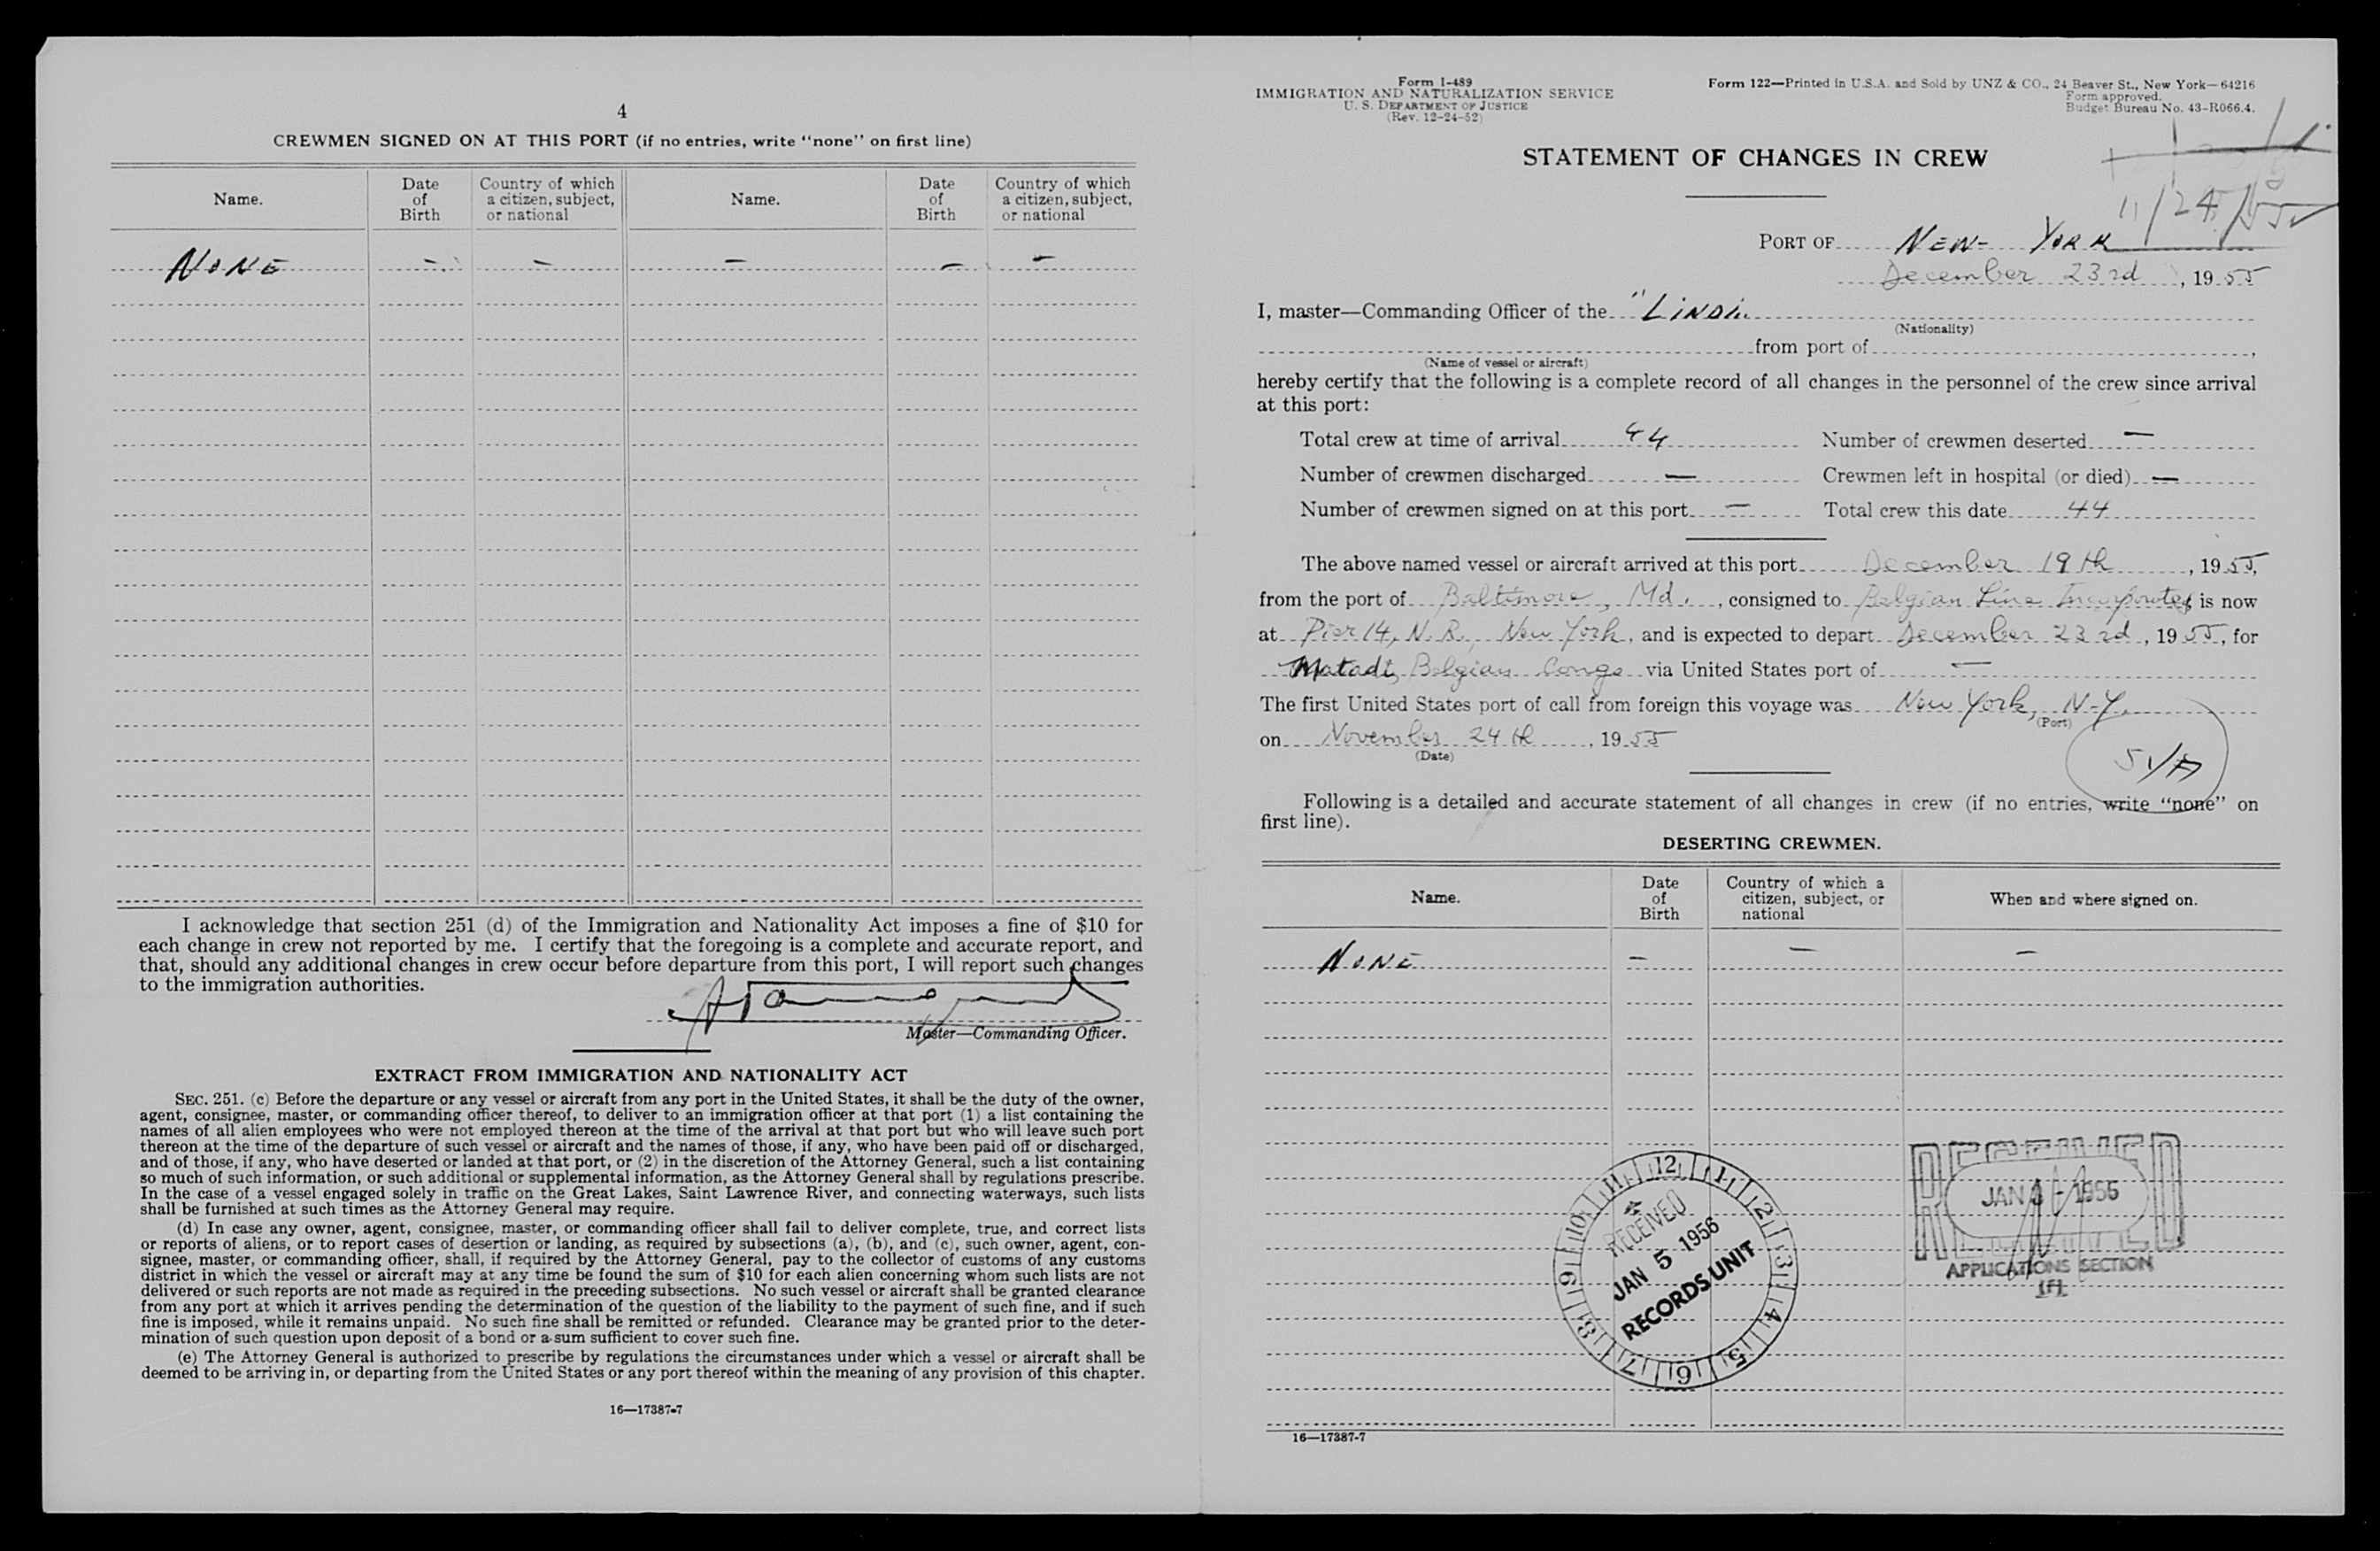 4
CREWMEN SIGNED ON AT THIS PORT (if no entries, write "none" on first line)
Name. Date of Birth Country of which a citizen, subject, or national Name. Date of Birth Country of which a citizen, subject, or national
NONE - - - - -
I acknowledge that section 251 (d) of the Immigration and Nationality Act imposes a fine of $10 for
each change in crew not reported by me. I certify that the foregoing is a complete and accurate report, and
that, should any additional changes in crew occur before departure from this port, I will report such changes
to the immigration authorities.
Master—Commanding Officer.
EXTRACT FROM IMMIGRATION AND NATIONALITY ACT
SEC. 251. (c) Before the departure or any vessel or aircraft from any port in the United States, it shall be the duty of the owner,
agent, consignee, master, or commanding officer thereof, to deliver to an immigration officer at that port (1) a list containing the
names of all alien employees who were not employed thereon at the time of the arrival at that port but who will leave such port
thereon at the time of the departure of such vessel or aircraft and the names of those, if any, who have been paid off or discharged,
and of those, if any, who have deserted or landed at that port, or (2) in the discretion of the Attorney General, such a list containing
so much of such information, or such additional or supplemental information, as the Attorney General shall by regulations prescribe.
In the case of a vessel engaged solely in traffic on the Great Lakes, Saint Lawrence River, and connecting waterways, such lists
shall be furnished at such times as the Attorney General may require.
(d) In case any owner, agent, consignee, master, or commanding officer shall fail to deliver complete, true, and correct lists
or reports of aliens, or to report cases of desertion or landing, as required by subsections (a), (b), and (c), such owner, agent, con-
signee, master, or commanding officer, shall, if required by the Attorney General, pay to the collector of customs of any customs
district in which the vessel or aircraft may at any time be found the sum of $10 for each alien concerning whom such lists are not
delivered or such reports are not made as required in the preceding subsections. No such vessel or aircraft shall be granted clearance
from any port at which it arrives pending the determination of the question of the liability to the payment of such fine, and if such
fine is imposed, while it remains unpaid. No such fine shall be remitted or refunded. Clearance may be granted prior to the deter-
mination of such question upon deposit of a bond or a sum sufficient to cover such fine.
(e) The Attorney General is authorized to prescribe by regulations the circumstances under which a vessel or aircraft shall be
deemed to be arriving in, or departing from the United States or any port thereof within the meaning of any provision of this chapter.
16—17387-7
Form I-489
IMMIGRATION AND NATURALIZATION SERVICE
U. S. DEPARTMENT OF JUSTICE
(Rev. 12-24-52)
Form 122—Printed in U.S.A. and Sold by UNZ & CO., 24 Beaver St., New York—64216
Form approved.
Budget Bureau No. 43-R066.4.
STATEMENT OF CHANGES IN CREW
11/24/55
PORT OF NEW-YORK
December 23rd, 1955
I, master—Commanding Officer of the "LiNDi
(Nationality)
from port of ,
(Name of vessel or aircraft)
hereby certify that the following is a complete record of all changes in the personnel of the crew since arrival
at this port:
Total crew at time of arrival 44 Number of crewmen deserted —
Number of crewmen discharged — Crewmen left in hospital (or died) —
Number of crewmen signed on at this port — Total crew this date 44
The above named vessel or aircraft arrived at this port December 19th, 1955,
from the port of Baltimore, Md., consigned to Belgian Line Incorporated is now
at Pier 14, N. R., New York, and is expected to depart December 23rd, 1955, for
Matadi, Belgian Congo via United States port of —
The first United States port of call from foreign this voyage was New York, N-Y.
(Port)
on November 24th, 1955
(Date)
Following is a detailed and accurate statement of all changes in crew (if no entries, write "none" on
first line).
DESERTING CREWMEN.
Name. Date of Birth Country of which a citizen, subject, or national When and where signed on.
NONE - - -
12 1 2 3 4 5 6 7 8 9 10 11
RECEIVED
JAN 5 1956
RECORDS UNIT
RECEIVED
APPLICATIONS SECTION
16—17387-7